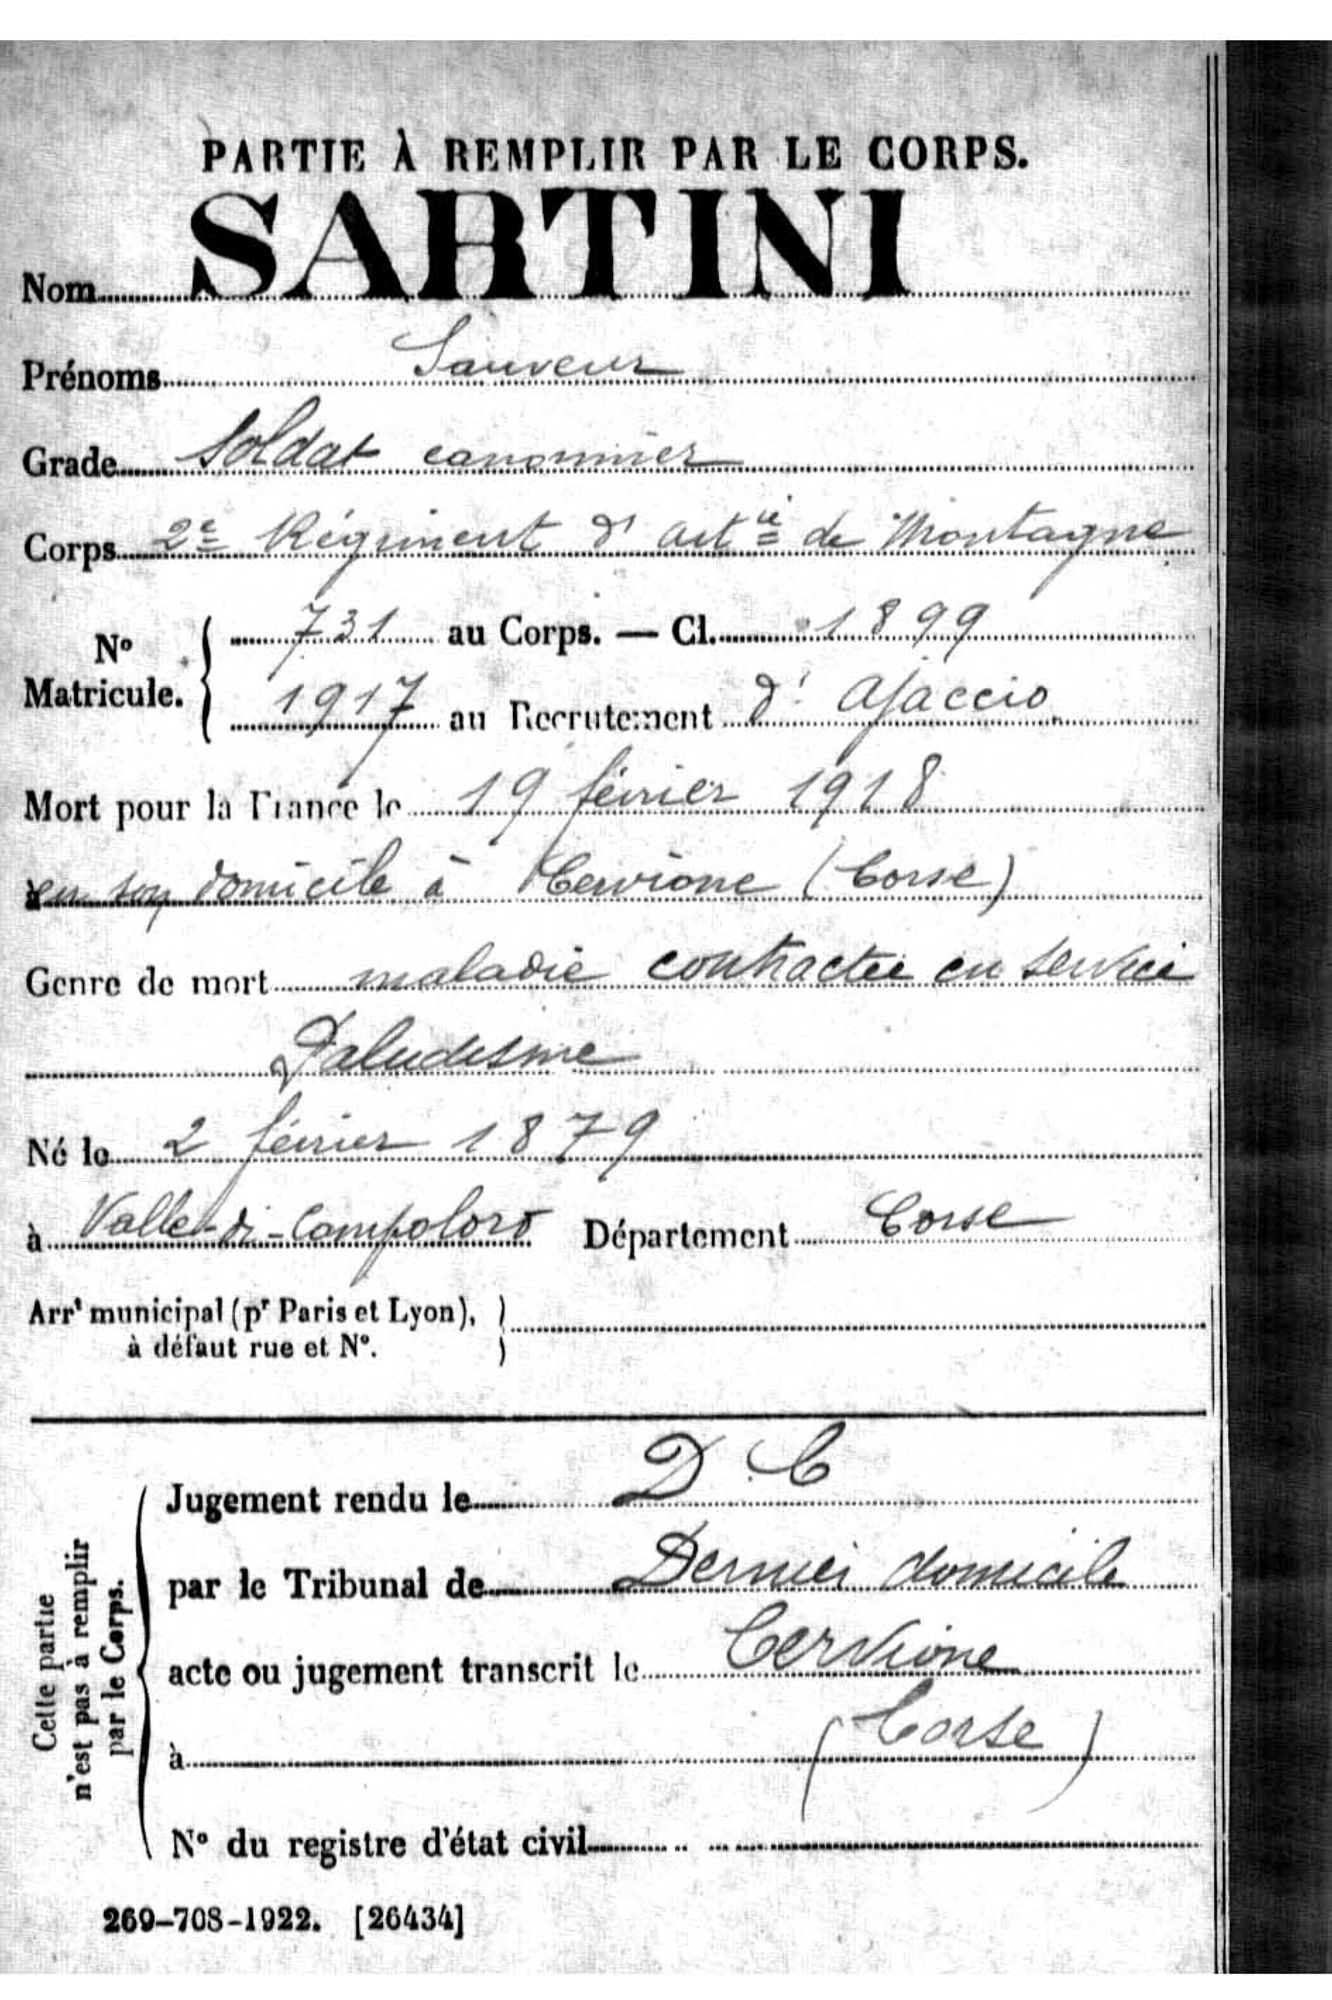 PARTIE À REMPLIR PAR LE CORPS.
Nom SARTINI
Prénoms Sauveur
Grade Soldat canonnier
Corps 2e Régiment d'artie de Montagne
No Matricule. { 731 au Corps. — Cl. 1899
1917 au Recrutement d'Ajaccio
Mort pour la France le 19 février 1918
à en son domicile à Cervione (Corse)
Genre de mort maladie contractée en service
Paludisme
Né le 2 février 1879
à Valle-di-Campoloro Département Corse
Arrt municipal (pr Paris et Lyon), }
à défaut rue et No.
Cette partie n'est pas à remplir par le Corps.
Jugement rendu le D C
par le Tribunal de Dernier domicile
acte ou jugement transcrit le Cervione
à (Corse)
No du registre d'état civil
269-708-1922. [26434]